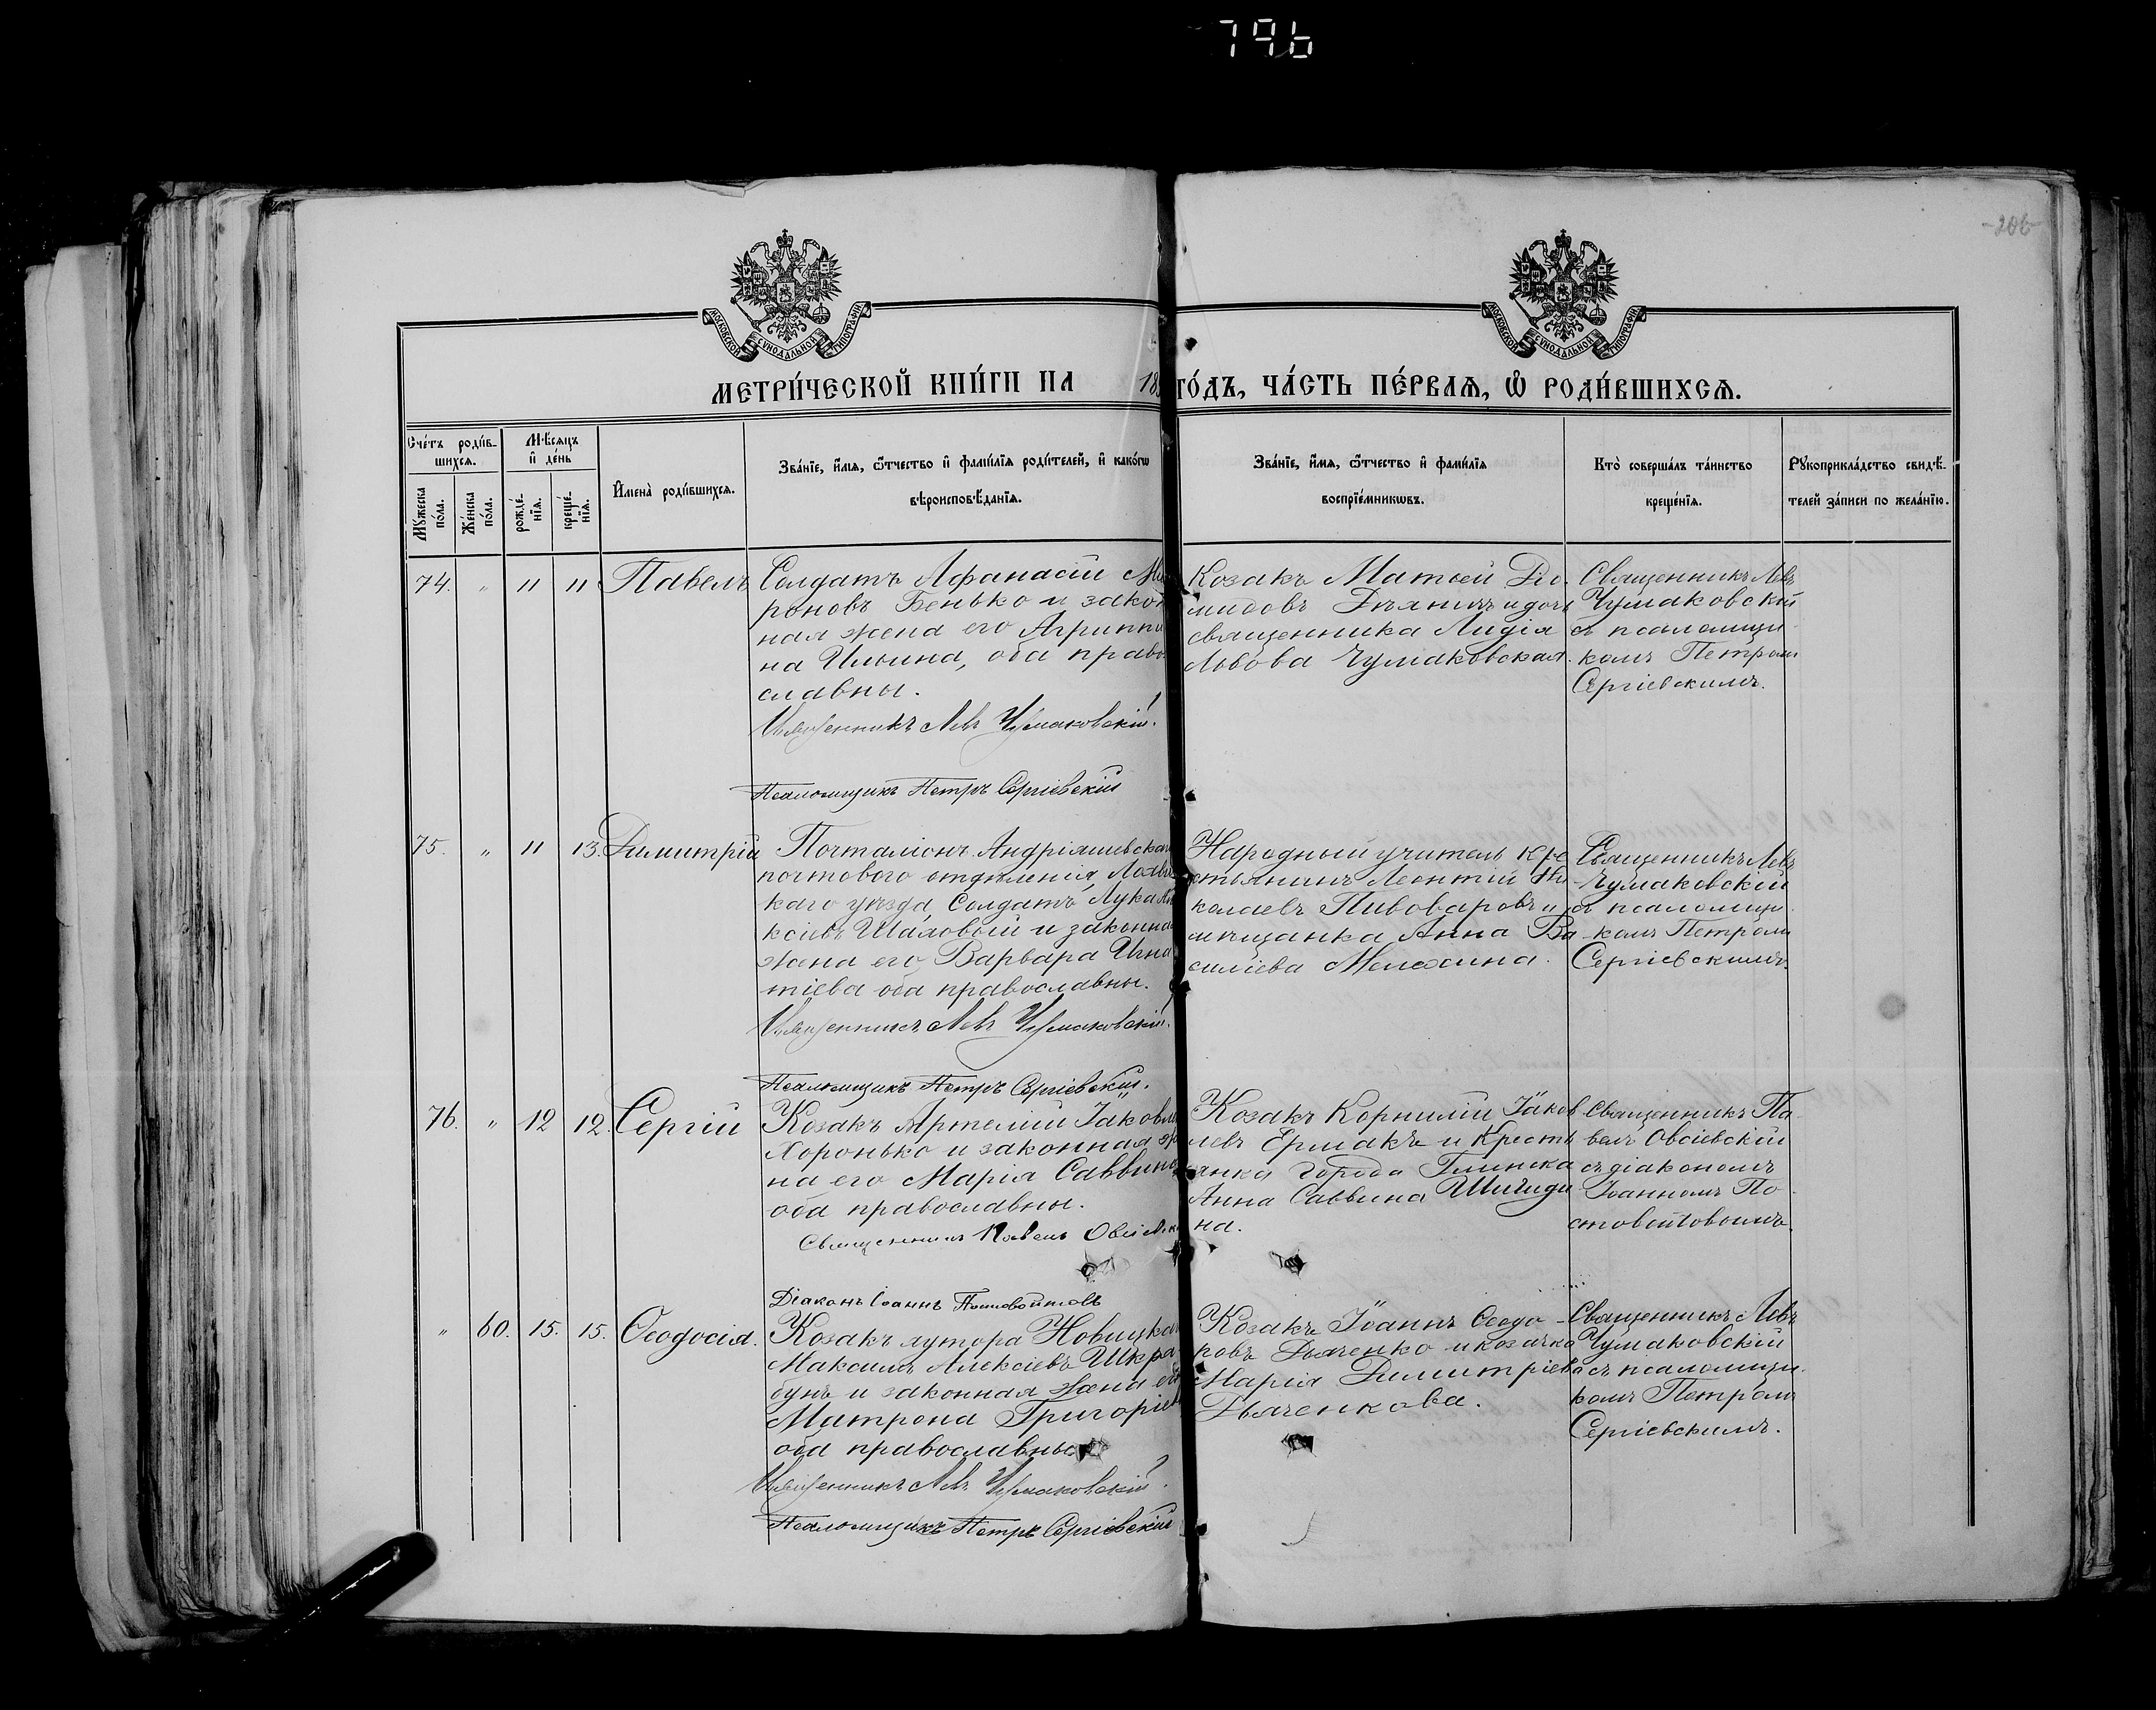 796
206
МОСКОВСКОЙ СѴНОДАЛЬНОЙ ТИПОГРАФІИ
МОСКОВСКОЙ СѴНОДАЛЬНОЙ ТИПОГРАФІИ
МЕТРИ́ЧЕСКОЙ КНИ́ГИ НА 18 ГО́ДЪ, ЧА́СТЬ ПЕ́РВАѦ, Ѡ҆ РОДИ́ВШИХСѦ.
Сче́тъ роди́в-
шихсѧ.
Мѣ́сѧцъ
и҆ де́нь
Мꙋ́жеска по́ла.
Же́нска по́ла.
рожде́-
нїѧ.
креще́-
нїѧ.
И҆мена̀ роди́вшихсѧ.
Зва́нїе, и҆́мѧ, ѻ҆́тчество и҆ фами́лїѧ роди́телей, и҆ како́гѡ
вѣроисповѣ́данїѧ.
Зва́нїе, и҆́мѧ, ѻ҆́тчество и҆ фами́лїѧ
воспрїе́мникѡвъ.
Кто̀ соверша́лъ та́инство
креще́нїѧ.
Рꙋкоприкла́дство свидѣ́-
телей за́писи по жела́нїю.
74. " 11 11 Павелъ
Солдатъ Афанасій Ми
роновъ Бенько и закон
ная жена его Агриппи
на Ильина, оба право
славны.
Священникъ Левъ Чумаковскій.
Псаломщикъ Петръ Сергіевскій
Козакъ Матѳей Ди
мидовъ и дочь
священника Лидія
Львова Чумаковская.
Священникъ Левъ
Чумаковскій
съ псаломщи
комъ Петромъ
Сергіевскимъ.
75. " 11 13. Димитрій
Почталіонъ Андріяшевскаго
почтового отдѣленія, Лохвиц
каго уѣзда, Солдатъ Лука Але
ксіевъ Шаховый и законная
жена его Варвара Игна
тіева оба православны.
Священникъ Левъ Чумаковскій.
Псаломщикъ Петръ Сергіевскій.
Народный учитель кре
стьянинъ Леонтій Ни
колаевъ Пивоваровъ и
мѣщанка Анна Ва
силіева Мелехина.
Священникъ Левъ
Чумаковскій
съ псаломщи
комъ Петромъ
Сергіевскимъ.
76. " 12 12. Сергій
Козакъ Артемій Іаковлев
Хоронько и законная же
на его Марія Саввина
оба православны.
Священникъ Павелъ Овсіевскій
Діаконъ Іоаннъ Постовойтовъ
Козакъ Корнилій Іаков
левъ Ермакъ и Кресть
янка города Глинска
Анна Саввина Шигиди
на.
Священникъ Па
велъ Овсіевскій
съ діакономъ
Іоанномъ По
стовойтовымъ.
" 60. 15. 15. Ѳеодосія.
Козакъ хутора Новицкаго
Максимъ Алексіевъ Шкра
бунъ и законная жена его
Матрона Григоріева
оба православны
Священникъ Левъ Чумаковскій.
Псаломщикъ Петръ Сергіевскій
Козакъ Іоаннъ Ѳеодо
ровъ Дьяченко и козачка
Марія Димитріева
Дьяченкова.
Священникъ Левъ
Чумаковскій
съ псаломщи
комъ Петромъ
Сергіевскимъ.